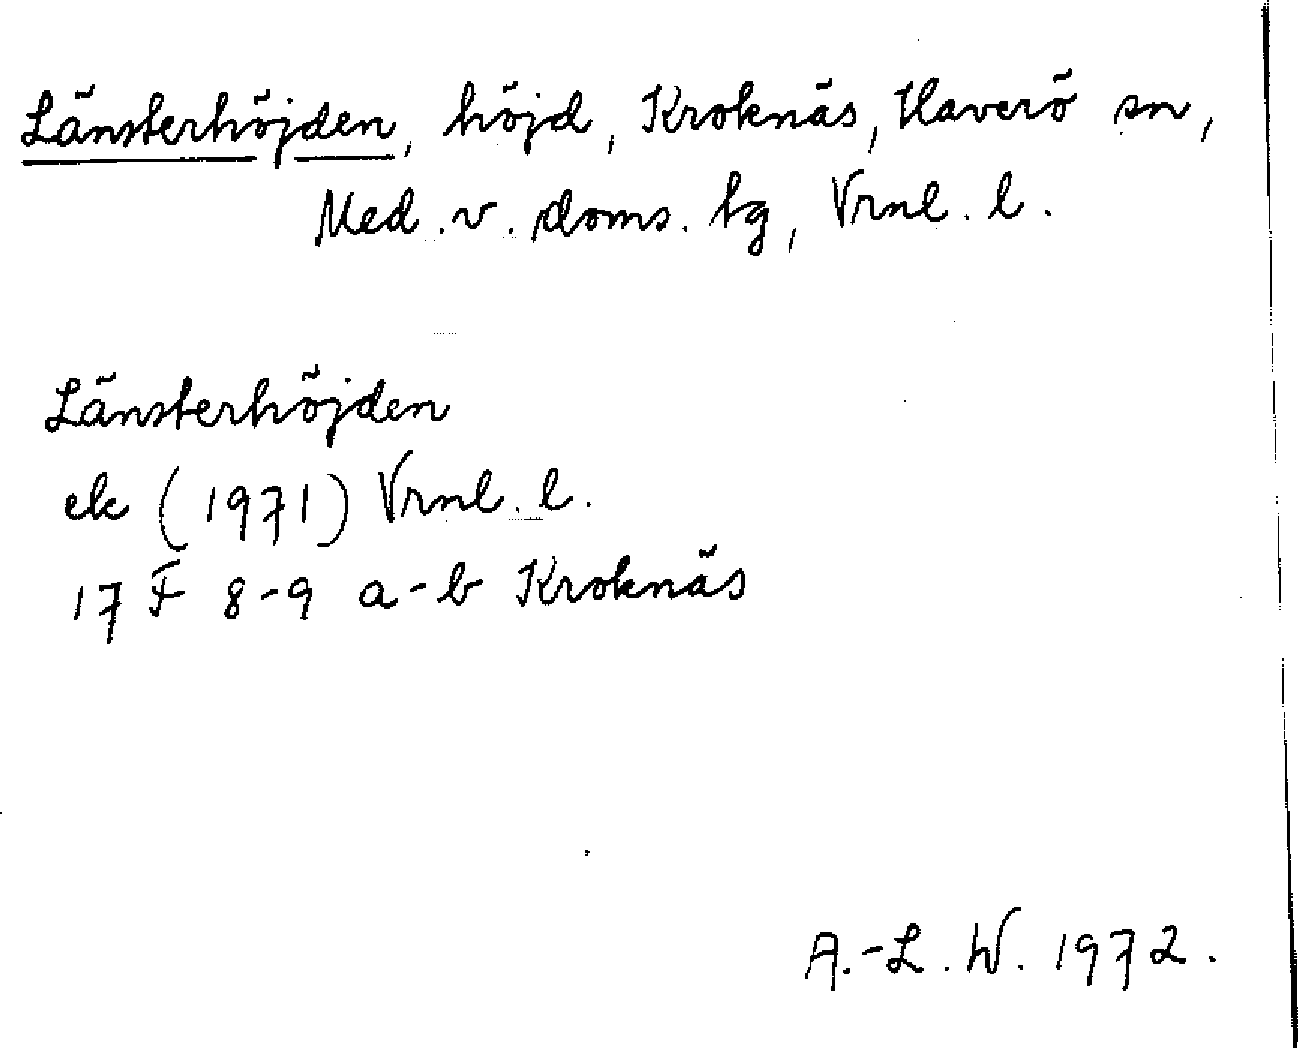 Länsterhöjden, höjd, Kroknäs, Haverö sn,
Med. v. doms. tg, Vrnl. l.
Länsterhöjden
ek (1971) Vrnl. l.
17 F 8-9 a-b Kroknäs
A.-L. W. 1972.